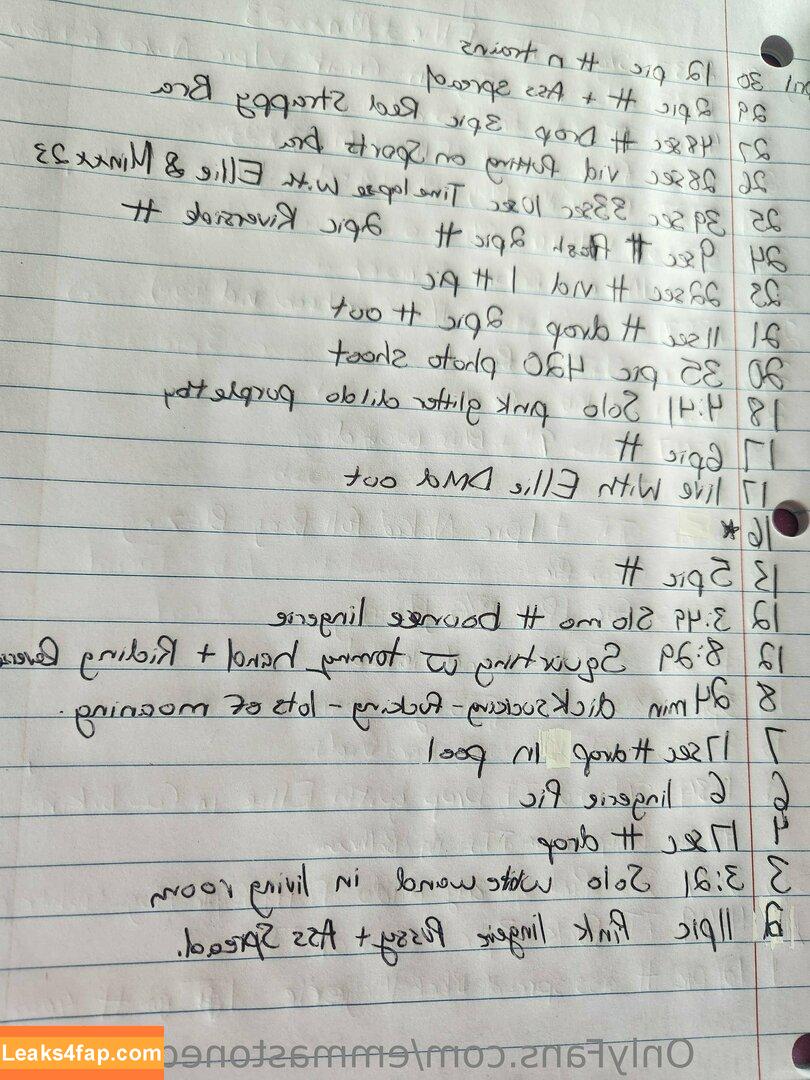 30 12 pic # n trains
29 2pic # + Ass spread
27 48sec # Drop 3pic Red Strappy Bra
26 28sec vid Putting on Sports bra
25 39sec 33sec 10sec Time lapse With Ellie & Minxx23
24 9sec # flash 2pic # 2pic Riverside #
22sec # vid 1 # pic
21 11sec # drop 2pic # out
20 35 pic 420 photo shoot
18 4:41 Solo pink glitter dildo purple toy
17 6pic #
17 live With Ellie DMd out
16 *
13 5pic #
12 3:49 Slo mo # bounce lingerie
12 8:29 Squirting tommy hand + Riding
8 24 min dicksucking - fucking - lots of moaning.
7 17sec # drop in pool
6 6 lingerie Pic
4 17sec # drop
3 3:21 Solo wand in living room
2 11pic Pink lingerie Pussy + Ass Spread.
OnlyFans.com/emmastoned
Leaks4fap.com